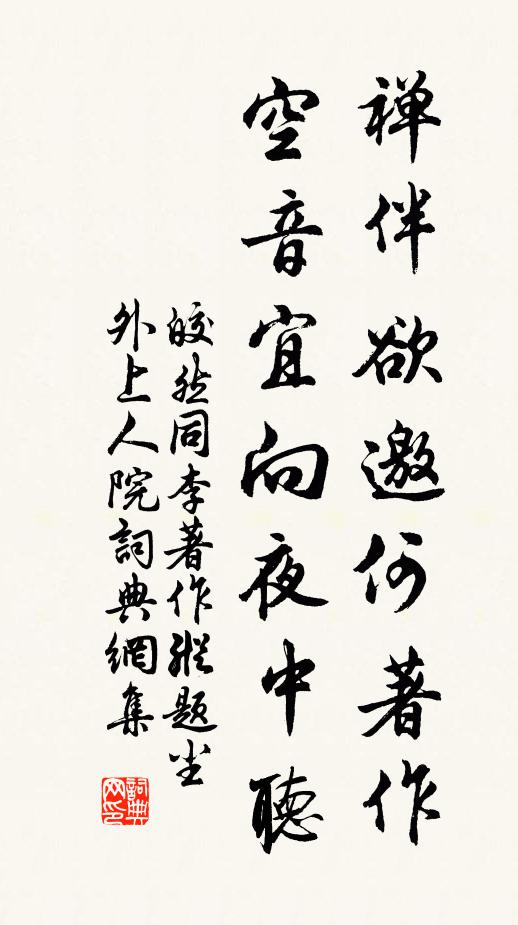 禅伴欲邀何著作
空音宜向夜中聽
皎然同李著作縱題尘
外上人院詞典網集
詞典网印